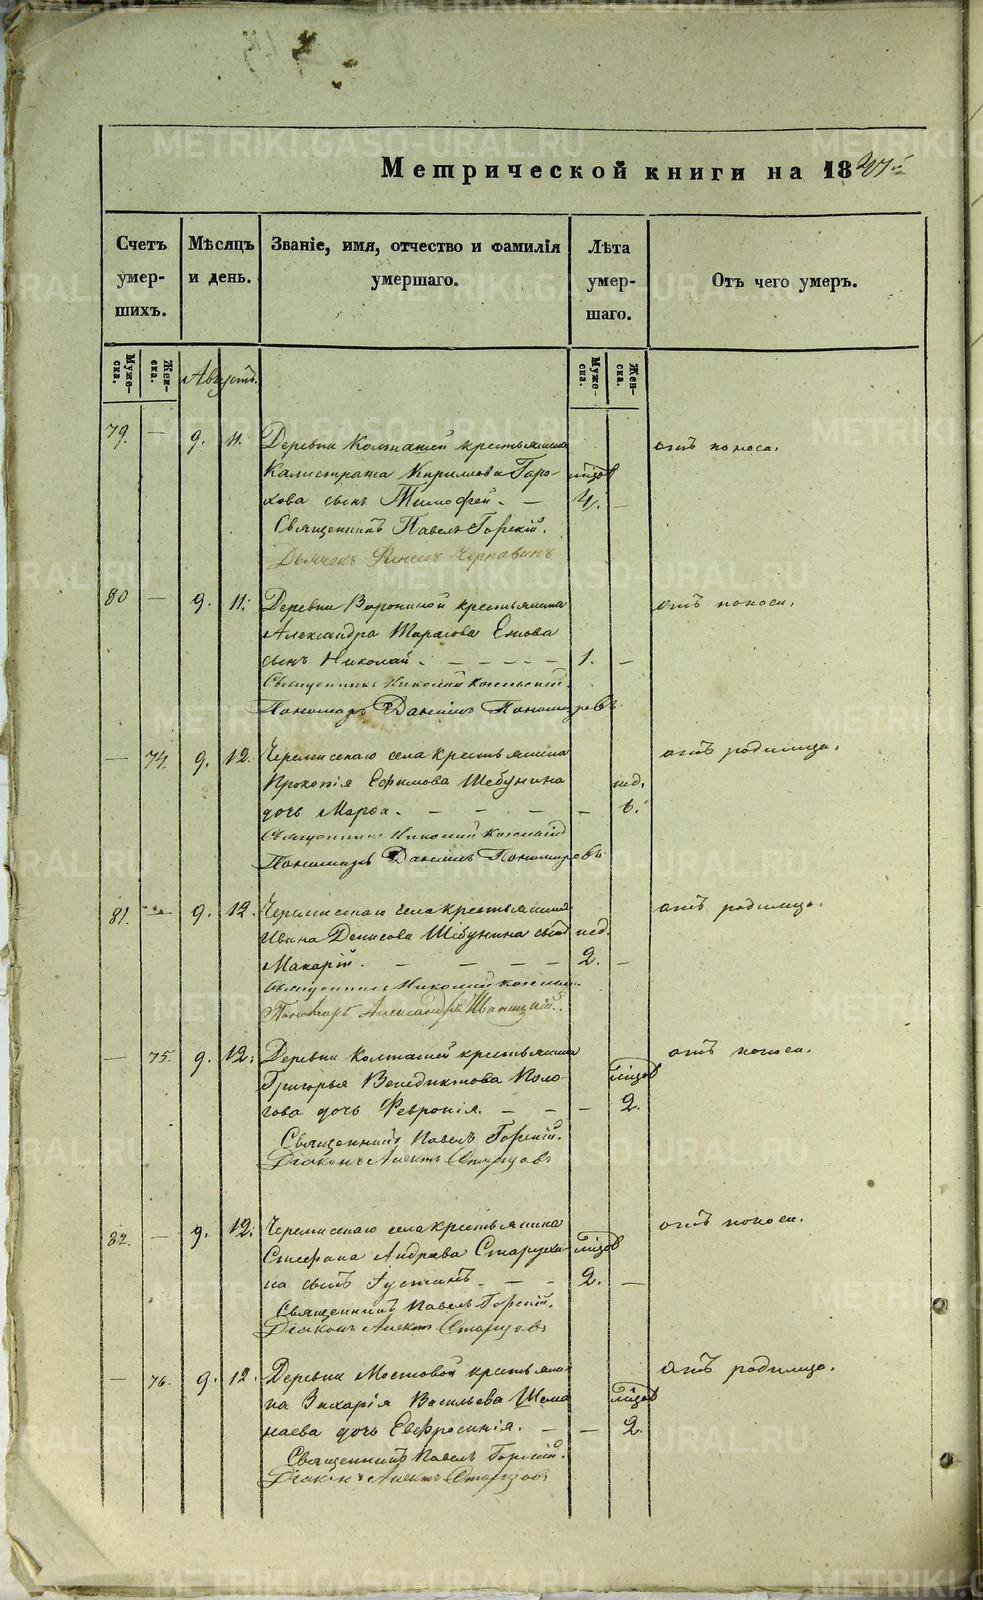 Метрической книги на 18
Счетъ умер-шихъ.
Мѣсяцъ и день.
Званіе, имя, отчество и фамилія умершаго.
Лѣта умер-шаго.
Отъ чего умеръ.
Муже-ска.
Жен-ска.
Августъ.
Муже-ска.
Жен-ска.
79. — 9. 11. Деревни Колташей крестьянина отъ поноса.
Калистрата Кириллова Горо-
хова сынъ Тимофей. — 4. —
Священникъ Павелъ Горскій.
Дьячекъ Чернавинъ
80 — 9. 11. Деревни Ворониной крестьянина отъ поноса.
Александра Тарасова
сынъ Николай. — — — — 1. —
Священникъ Николай
Пономарь Даніилъ Пономаревъ
— 74. 9. 12. Черемисскаго села крестьянина отъ родимца.
Прокопія Ефимова Шебунина нед.
дочь Марѳа. — — — — — 6.
Священникъ Николай
Пономарь Даніилъ Пономаревъ
81. — 9. 12. Черемисскаго села крестьянина отъ родимца.
Ивана Денисова Шебунина сынъ нед.
Макарій. — — — — 2. —
Священникъ Николай
Пономарь Александръ
— 75. 9. 12. Деревни Колташей крестьянина отъ поноса.
Григорья Венедиктова Поло-
гова дочь Февронія. — — — 2.
Священникъ Павелъ Горскій.
Діаконъ Старцовъ
82. — 9. 12. Черемисскаго села крестьянина отъ поноса.
Стефана Андреева Старухи-
на сынъ Іустинъ. — — 2. —
Священникъ Павелъ Горскій.
Діаконъ Старцовъ
— 76. 9. 12. Деревни Мостовой крестьяни- отъ родимца.
на Захарія Васильева Шема-
наева дочь Евфросинія. — — 2.
Священникъ Павелъ Горскій.
Діаконъ Старцовъ
METRIKI.GASO-URAL.RU